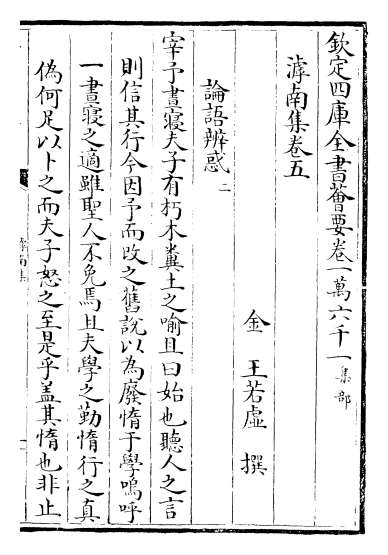 欽定四庫全書薈要卷一萬六千一集部
滹南集卷五
金 王若虛 撰
論語辨惑二
宰予晝寢夫子有朽木糞土之喻且曰始也聽人之言
則信其行今因予而改之舊說以為廢惰于學嗚呼
一晝寢之適雖聖人不免焉且夫學之勤惰行之真
偽何足以卜之而夫子怒之至是乎盖其惰也非止